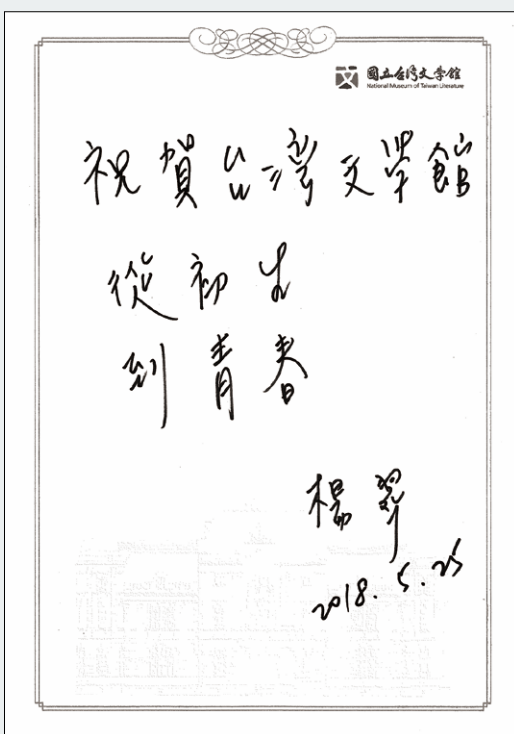 國立台灣文學館
National Museum of Taiwan Literature
祝賀台灣文學館
從初生
到青春
楊翠
2018.5.25